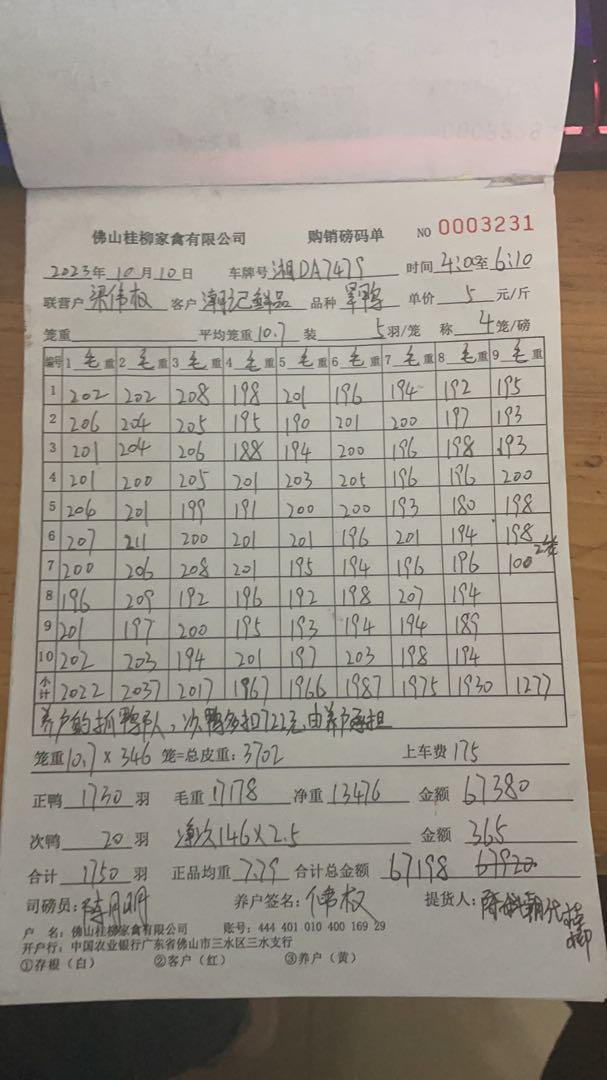 佛山桂柳家禽有限公司 购销磅码单 NO 0003231
2023年10月10日 车牌号 湘DA7479 时间 4:00至6:10
联营户 梁伟权 客户 潮记鲜品 品种 单价 5 元/斤
笼重 平均笼重10.7 装 5羽/笼 称 4笼/磅
编号 1 毛重 2 毛重 3 毛重 4 毛重 5 毛重 6 毛重 7 毛重 8 毛重 9 毛重
1 202 202 208 198 201 196 194 192 195
2 206 204 205 195 190 201 200 197 193
3 201 204 206 188 194 200 196 198 193
4 201 200 205 201 203 205 196 196 200
5 206 201 199 191 200 200 193 180 198
6 207 211 200 201 201 196 201 194 198
7 200 206 208 201 195 194 196 196 100 2笼
8 196 209 192 196 192 198 207 194
9 201 197 200 195 193 194 194 189
10 202 203 194 201 197 203 198 194
小计 2022 2037 2017 1967 1966 1987 1975 1930 1277
养户的抓鸭工人，次鸭多扣722元，由养户承担
笼重10.7×346 笼=总皮重：3702 上车费175
正鸭 1730 羽 毛重 17178 净重 13476 金额 67380
次鸭 20 羽 净次146×2.5 金额 365
合计 1750 羽 正品均重 7.79 合计总金额 67198 67920
司磅员： 养户签名：伟权 提货人：
户 名：佛山桂柳家禽有限公司 账号：444 401 010 400 169 29
开户行：中国农业银行广东省佛山市三水区三水支行
①存根（白） ②客户（红） ③养户（黄）